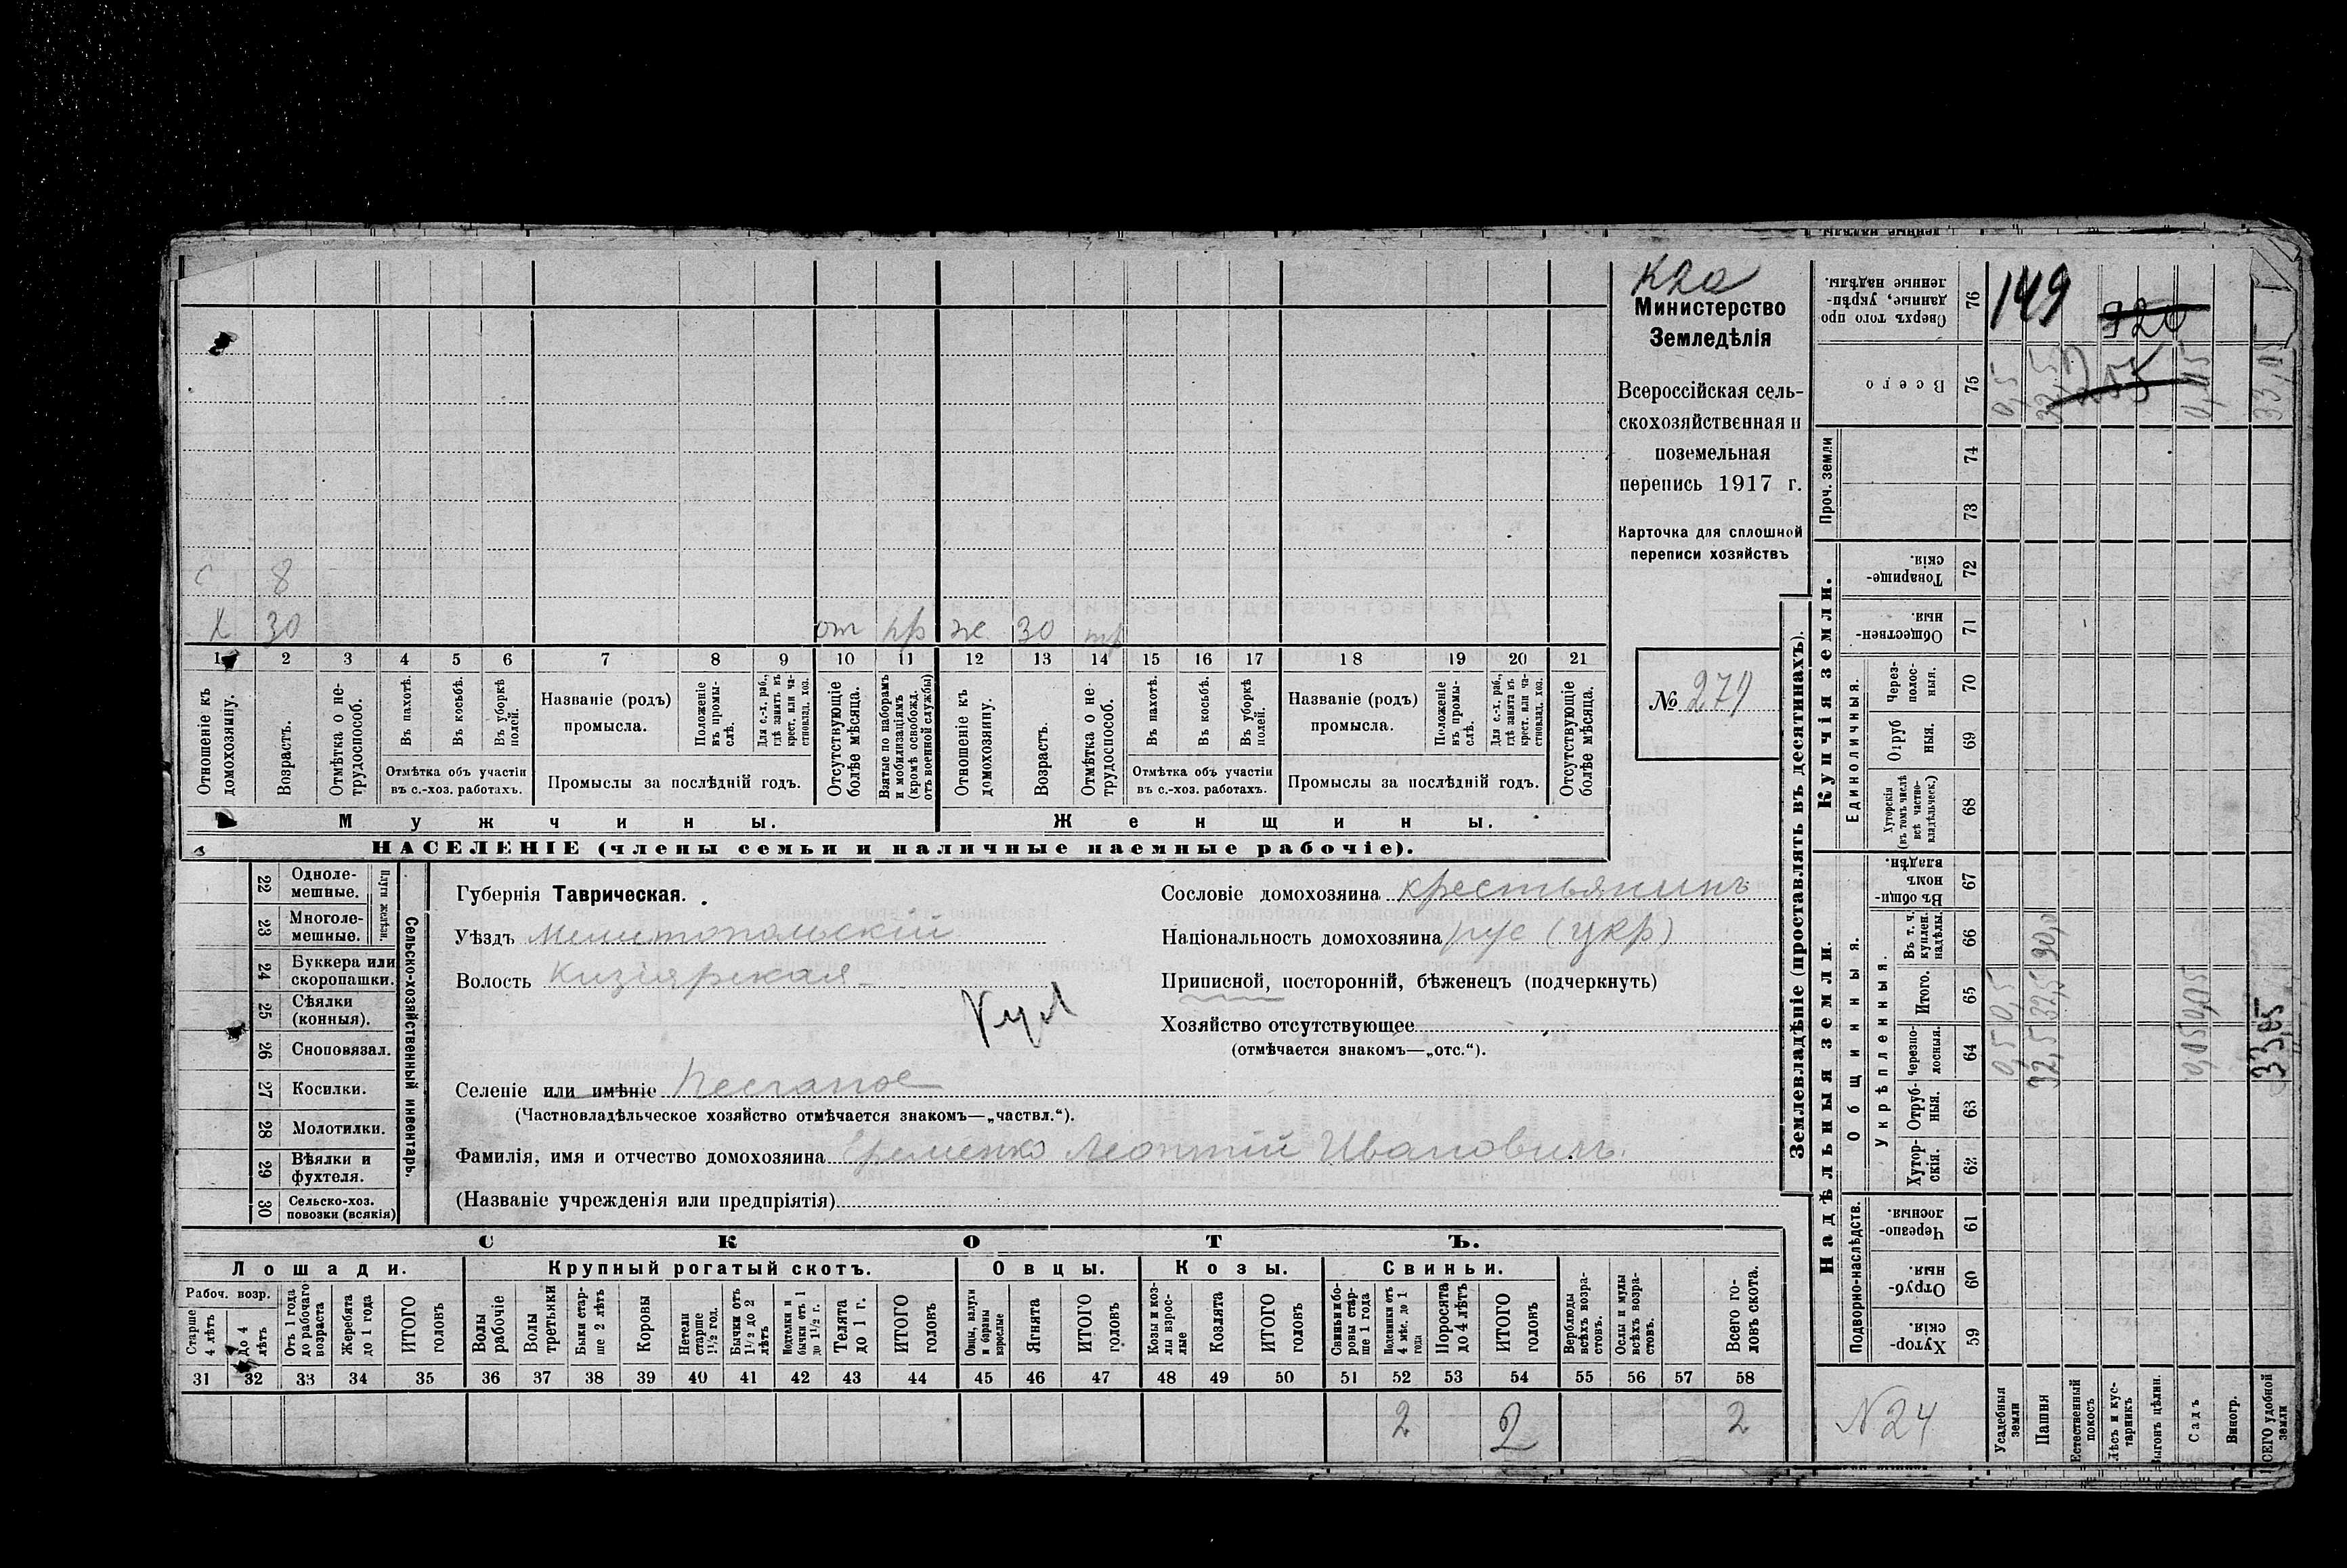 Кла
Министерство
Земледѣлія
Всероссійская сель-
скохозяйственная и
поземельная
перепись 1917 г.
Карточка для сплошной
переписи хозяйствъ
№ 271
с 8
х 30 от пр ж 30
1 2 3 4 5 6 7 8 9 10 11 12 13 14 15 16 17 18 19 20 21
Отношеніе къ домохозяину.
Возрастъ.
Отмѣтка о не-трудоспособ.
Въ пахотѣ.
Въ косьбѣ.
Въ уборкѣ полей.
Отмѣтка объ участіи
въ с.-хоз. работахъ.
Названіе (родъ)
промысла.
Положеніе въ промы-слѣ.
Для с.-х. раб., гдѣ занятъ въ крест. или ча-стновлад. хоз.
Промыслы за послѣдній годъ.
Отсутствующіе болѣе мѣсяца.
Взятые по наборамъ и мобилизаціямъ (кромѣ освобожд. отъ военной службы)
Отношеніе къ домохозяину.
Возрастъ.
Отмѣтка о не-трудоспособ.
Въ пахотѣ.
Въ косьбѣ.
Въ уборкѣ полей.
Отмѣтка объ участіи
въ с.-хоз. работахъ.
Названіе (родъ)
промысла.
Положеніе въ промы-слѣ.
Для с.-х. раб., гдѣ занятъ въ крест. или ча-стновлад. хоз.
Промыслы за послѣдній годъ.
Отсутствующіе болѣе мѣсяца.
Мужчины. Женщины.
НАСЕЛЕНІЕ (члены семьи и наличные наемные рабочіе).
Сельско-хозяйственный инвентарь.
Плуги желѣзн.
22 Одноле-мешные.
23 Многоле-мешные.
24 Буккера или скоропашки.
25 Сѣялки (конныя).
26 Сноповязал.
27 Косилки.
28 Молотилки.
29 Вѣялки и фухтеля.
30 Сельско-хоз. повозки (всякія)
Губернія Таврическая.
Уѣздъ Мелитопольскій
Волость Кизіярская
Селеніе или имѣніе Песчаное
(Частновладѣльческое хозяйство отмѣчается знакомъ—„частвл.“).
Фамилія, имя и отчество домохозяина Еременко Леонтій Ивановичъ.
(Названіе учрежденія или предпріятія)
Сословіе домохозяина крестьянинъ
Національность домохозяина рус (укр)
Приписной, посторонній, бѣженец (подчеркнуть)
Хозяйство отсутствующее
(отмѣчается знакомъ—„отс.“).
СКОТЪ.
Лошади. Крупный рогатый скотъ. Овцы. Козы. Свиньи.
Рабоч. возр.
Старше 4 лѣтъ
до 4 лѣтъ
Отъ 1 года до рабочаго возраста
Жеребята до 1 года
ИТОГО головъ
Волы рабочіе
Волы третьяки
Быки стар-ше 2 лѣтъ
Коровы
Нетели старше 1½ год.
Бычки отъ 1½ до 2 лѣтъ
Подтелки и бычки отъ 1 до 1½ г.
Телята до 1 г.
ИТОГО головъ
Овцы, валухи и бараны взрослые
Ягнята
ИТОГО головъ
Козы и коз-лы взрос-лые
Козлята
ИТОГО головъ
Свиньи и бо-ровы стар-ше 1 года
Подсвинки отъ 4 мѣс. до 1 года
Поросята до 4 лѣтъ
ИТОГО головъ
Верблюды всѣхъ возра-стовъ.
Ослы и мулы всѣхъ возра-стовъ.
Всего го-ловъ скота.
31 32 33 34 35 36 37 38 39 40 41 42 43 44 45 46 47 48 49 50 51 52 53 54 55 56 57 58
2 2 2
Землевладѣніе (проставлять въ десятинахъ).
Надѣльныя земли. Купчія земли.
Проч. земли
Подворно-наслѣдств.
Общинныя.
Укрѣпленныя.
Единоличныя.
Сверхъ того про-данные, укрѣп-ленные надѣлы. 76 149 720
Всего 75 0,5 32,5 255 0,05 33,05
74
73
Товарище-скія. 72
Обществен-ныя. 71
Через-полос-ныя. 70
Отруб-ныя. 69
Хуторскія (въ томъ числѣ всѣ частно-владѣльческ.) 68
Въ общи-номъ владѣн. 67
Въ т. ч. куплен. надѣлы. 66 30,0
Итого. 65 0,5 32,5 0,05
Черезпо-лосныя. 64 0,5 32,5 0,05 33,05
Отруб-ныя. 63
Хутор-скія. 62
Черезпо-лосныя. 61
Отруб-ныя. 60
Хутор-скія. 59
N 24
Усадебныя земли
Пашня
Естественный покосъ
Лѣсъ и кус-тарникъ
Выгонъ цѣлин.
Садъ
Виногр.
ВСЕГО удобной земли